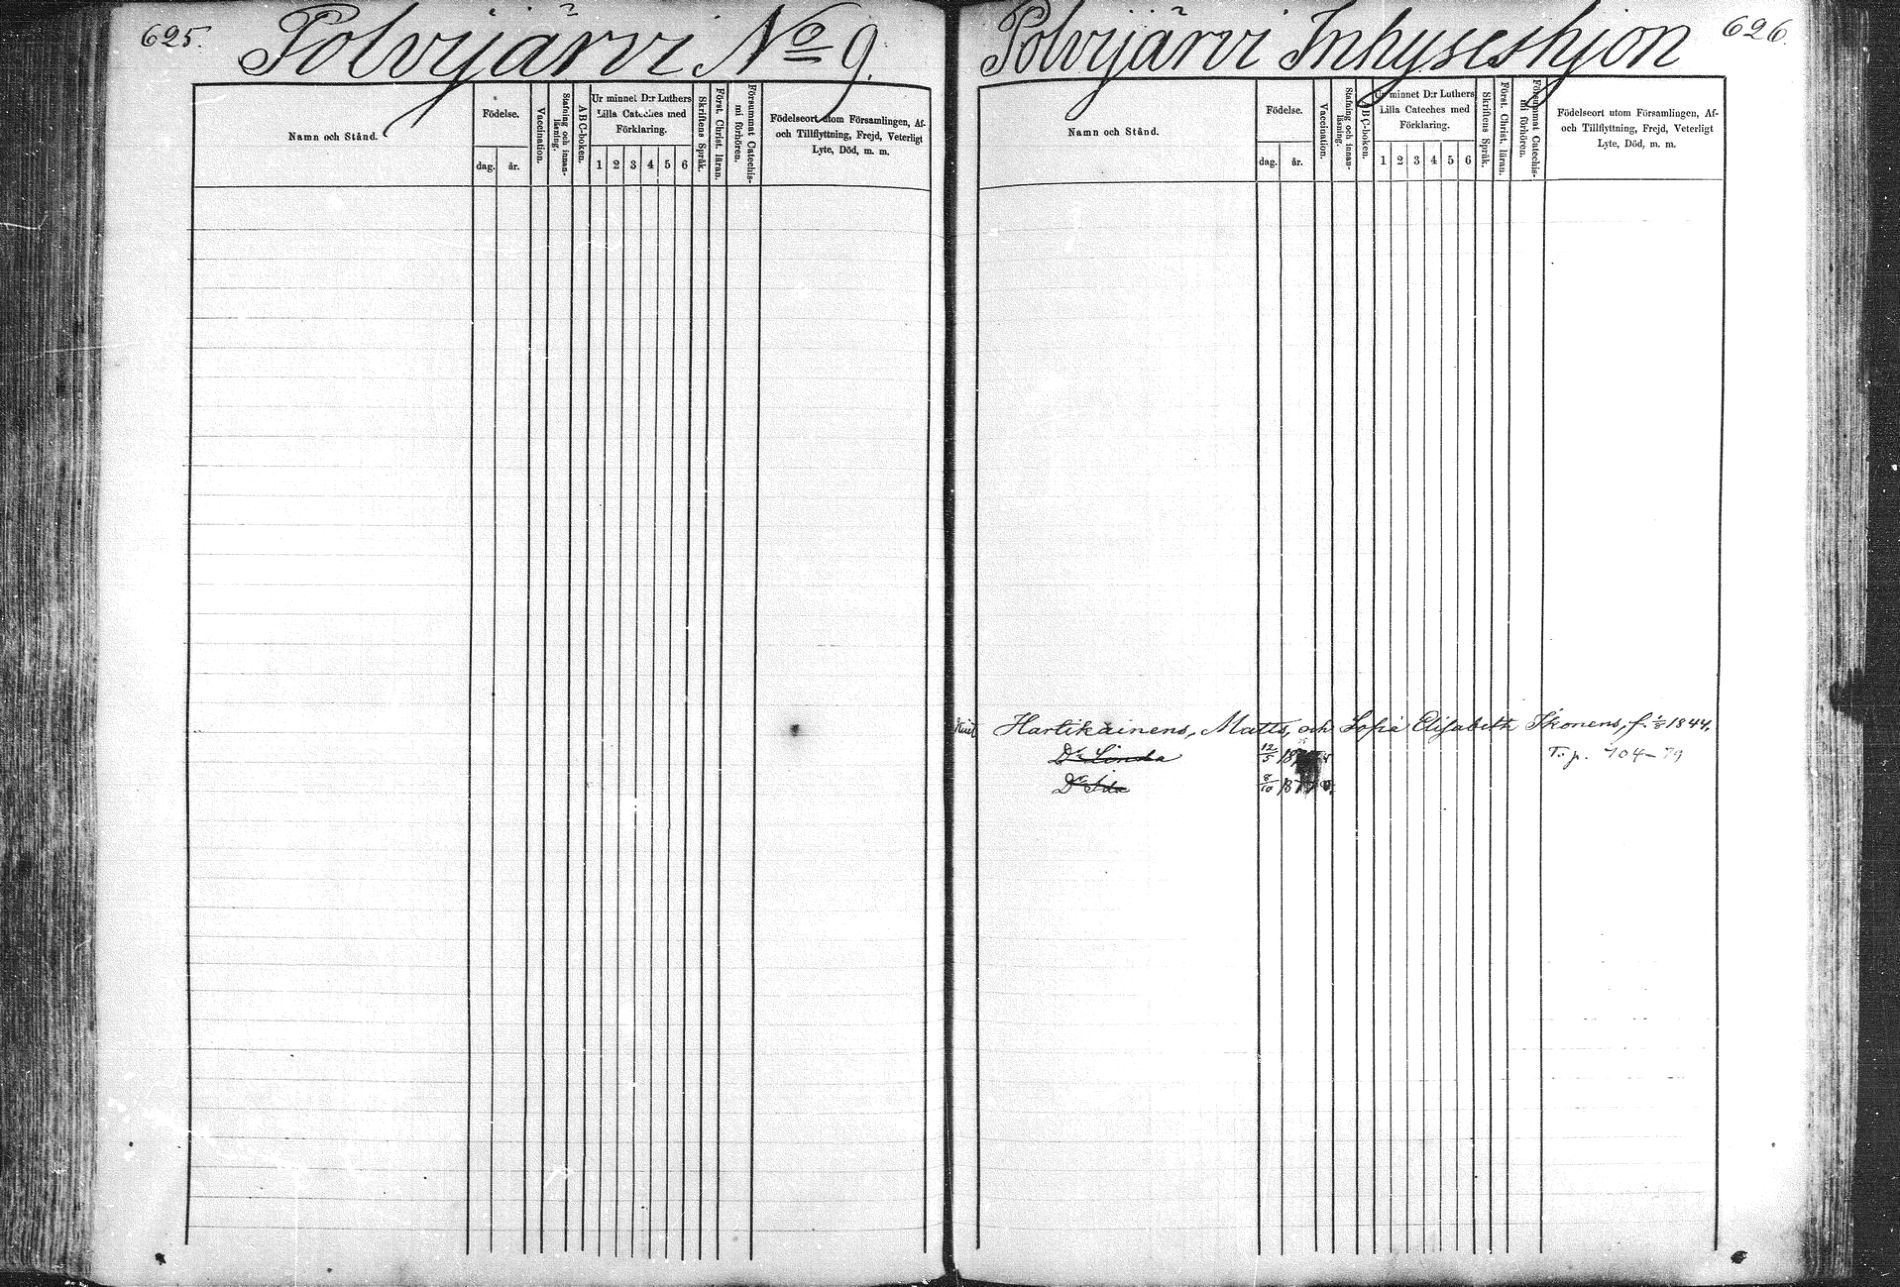 625.
Polvijärvi No 9.
Namn och Stånd.
Födelse.
dag.
år.
Vaccination.
Stafning och innan-
läsning.
ABC-boken.
Ur minnet D:r Luthers
Lilla Cateches med
Förklaring.
1 2 3 4 5 6
Skriftens Språk.
Först. Christ. läran.
Försummat Catechis-
mi förhören.
Födelseort utom Församlingen, Af-
och Tillflyttning, Frejd, Veterligt
Lyte, Död, m. m.
626.
Polvijärvi Inhyseshjon
Namn och Stånd.
Födelse.
dag.
år.
Vaccination.
Stafning och innan-
läsning.
ABC-boken.
Ur minnet D:r Luthers
Lilla Cateches med
Förklaring.
1 2 3 4 5 6
Skriftens Språk.
Först. Christ. läran.
Försummat Catechis-
mi förhören.
Födelseort utom Församlingen, Af-
och Tillflyttning, Frejd, Veterligt
Lyte, Död, m. m.
Hartikainens, Matts, och Sofia Elisabeth Ikonens, f. 1844.
Dr Linda 12/5 T. p. 104-79
Dr Ida 8/10